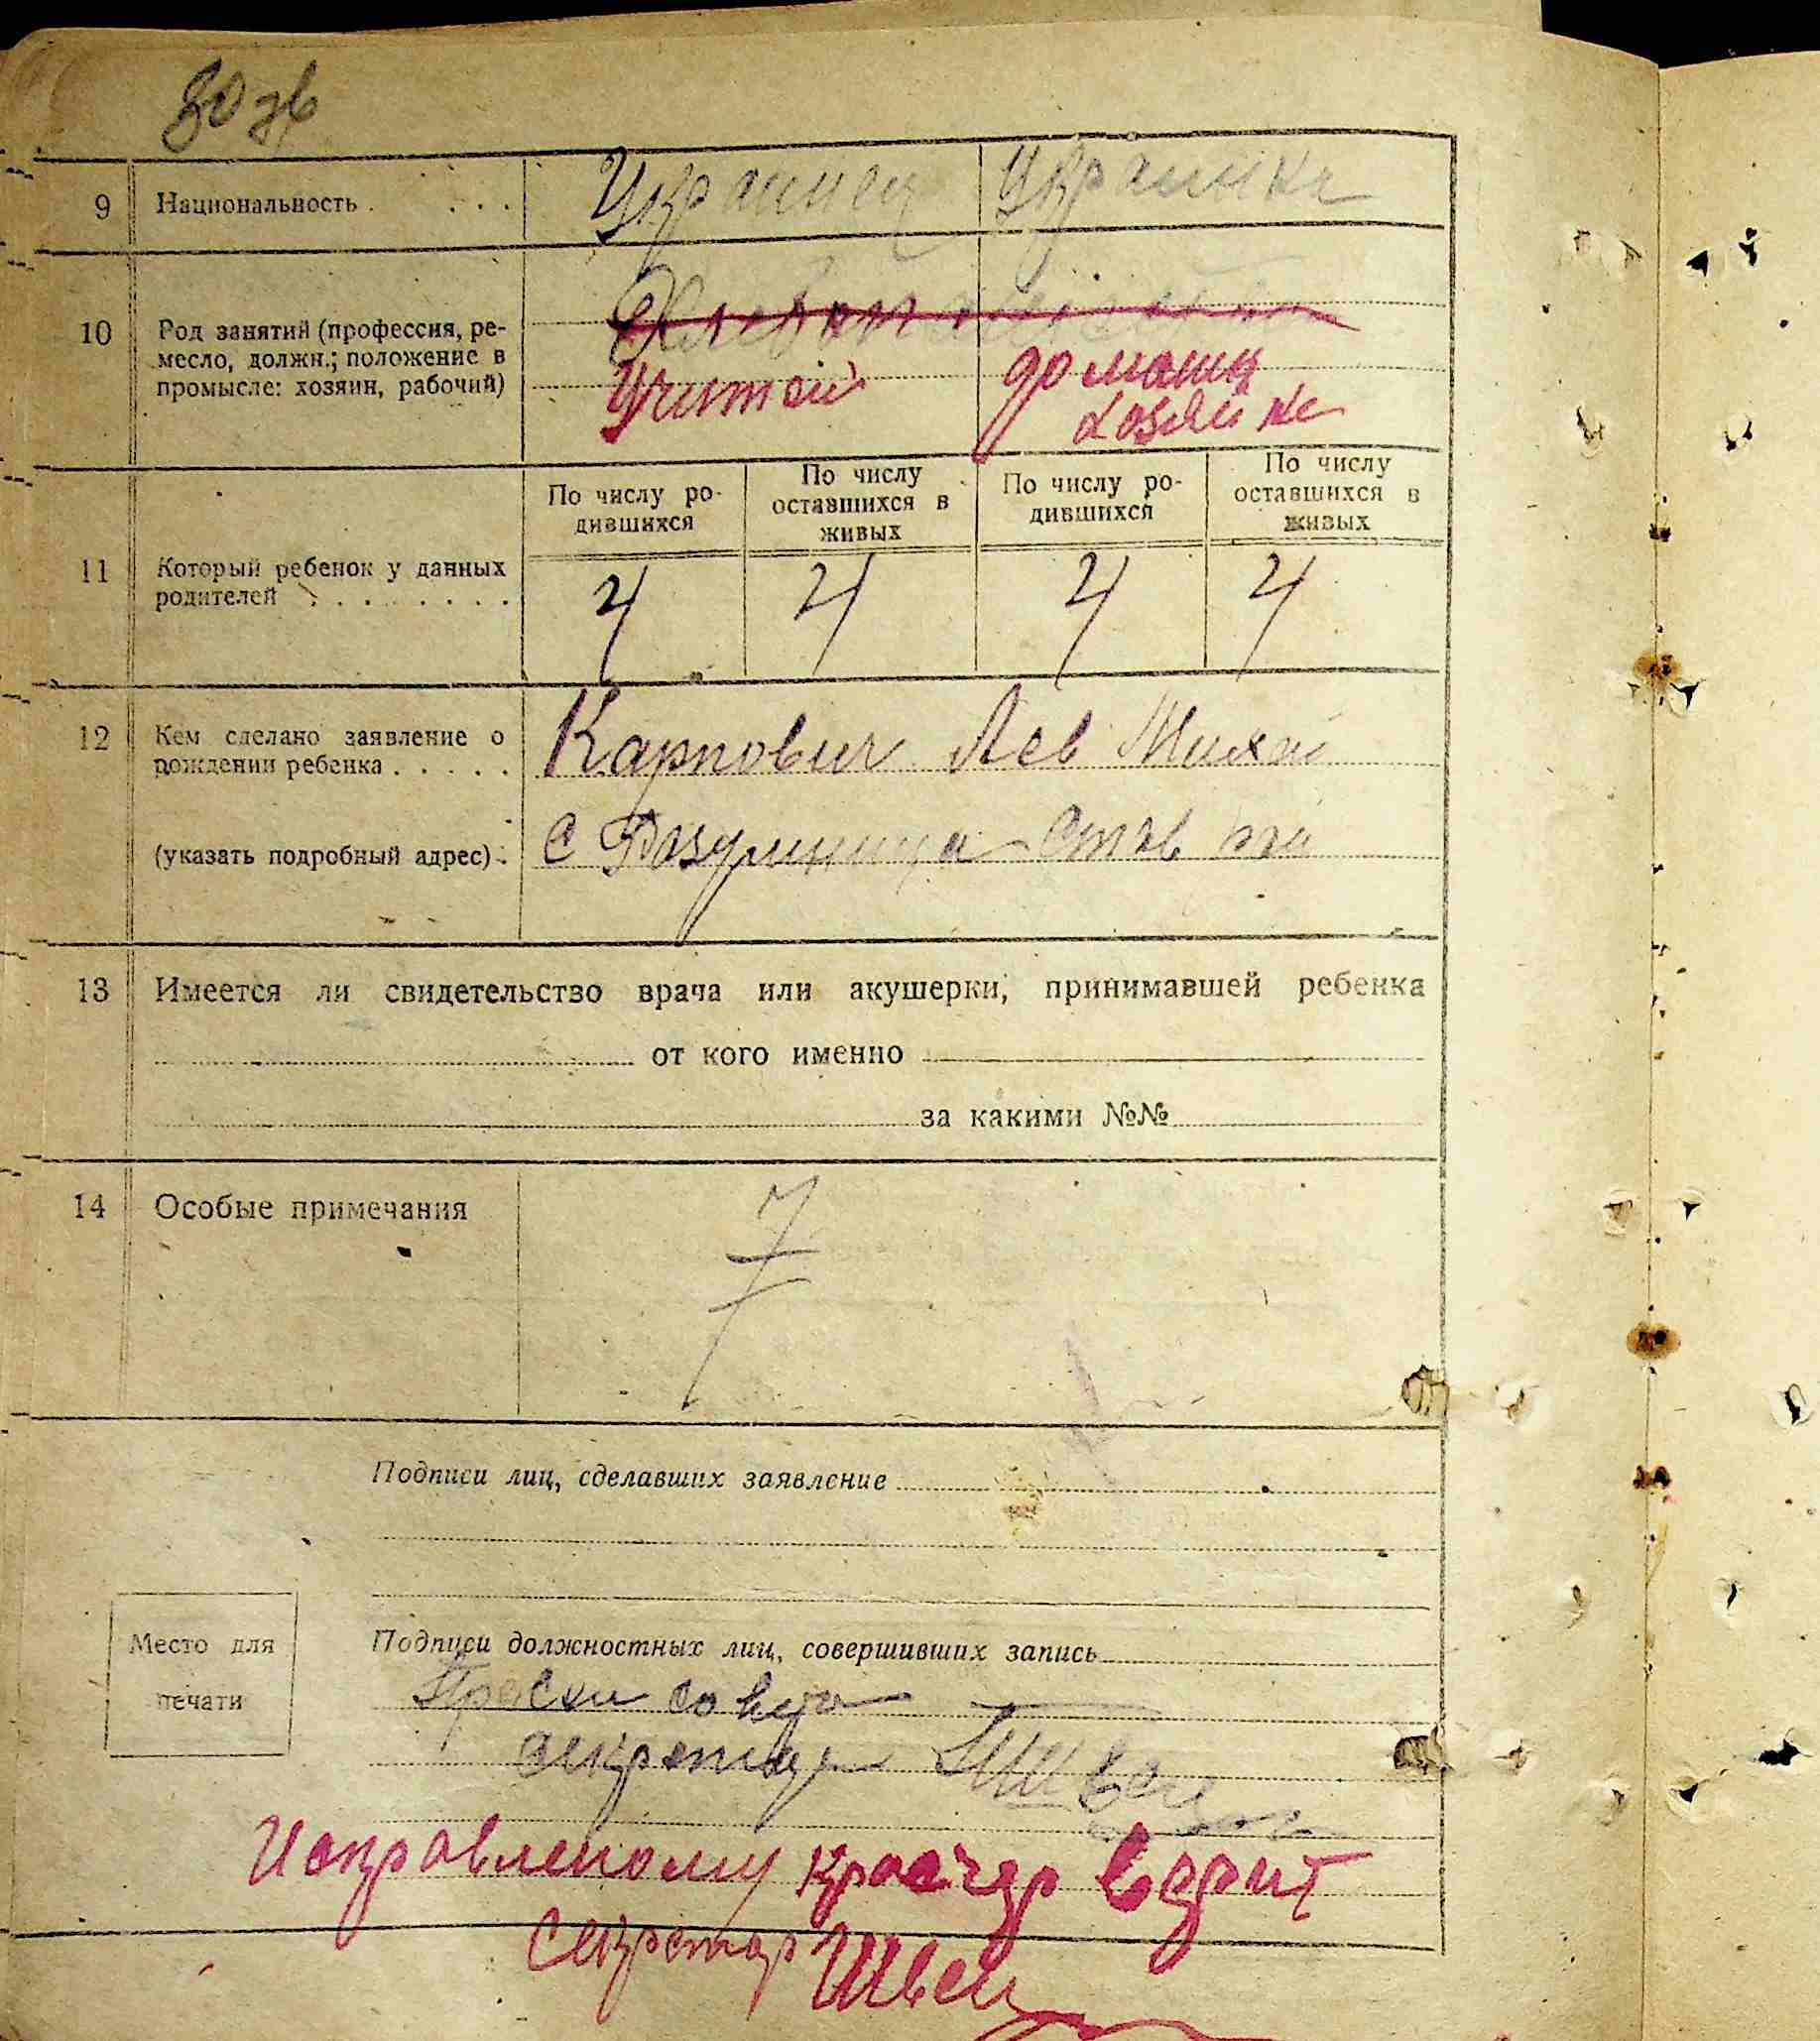 80 зв
9 Национальность . . . . Украинец Украинка
10 Род занятий (профессия, ре-
месло, должн.; положение в
промысле: хозяин, рабочий)
Учитель домашн
хозяйка
11 Который ребенок у данных
родителей . . . . . . . .
По числу ро-
дившихся
По числу
оставшихся в
живых
По числу ро-
дившихся
По числу
оставшихся в
живых
4 4 4 4
12 Кем сделано заявление о
рождении ребенка . . . . . Карпович Лев
(указать подробный адрес) . с
13 Имеется ли свидетельство врача или акушерки, принимавшей ребенка
от кого именно
за какими №№
14 Особые примечания
Подписи лиц, сделавших заявление
Место для
печати
Подписи должностных лиц, совершивших запись
секретарь
Исправленому верит
Секретар Швец